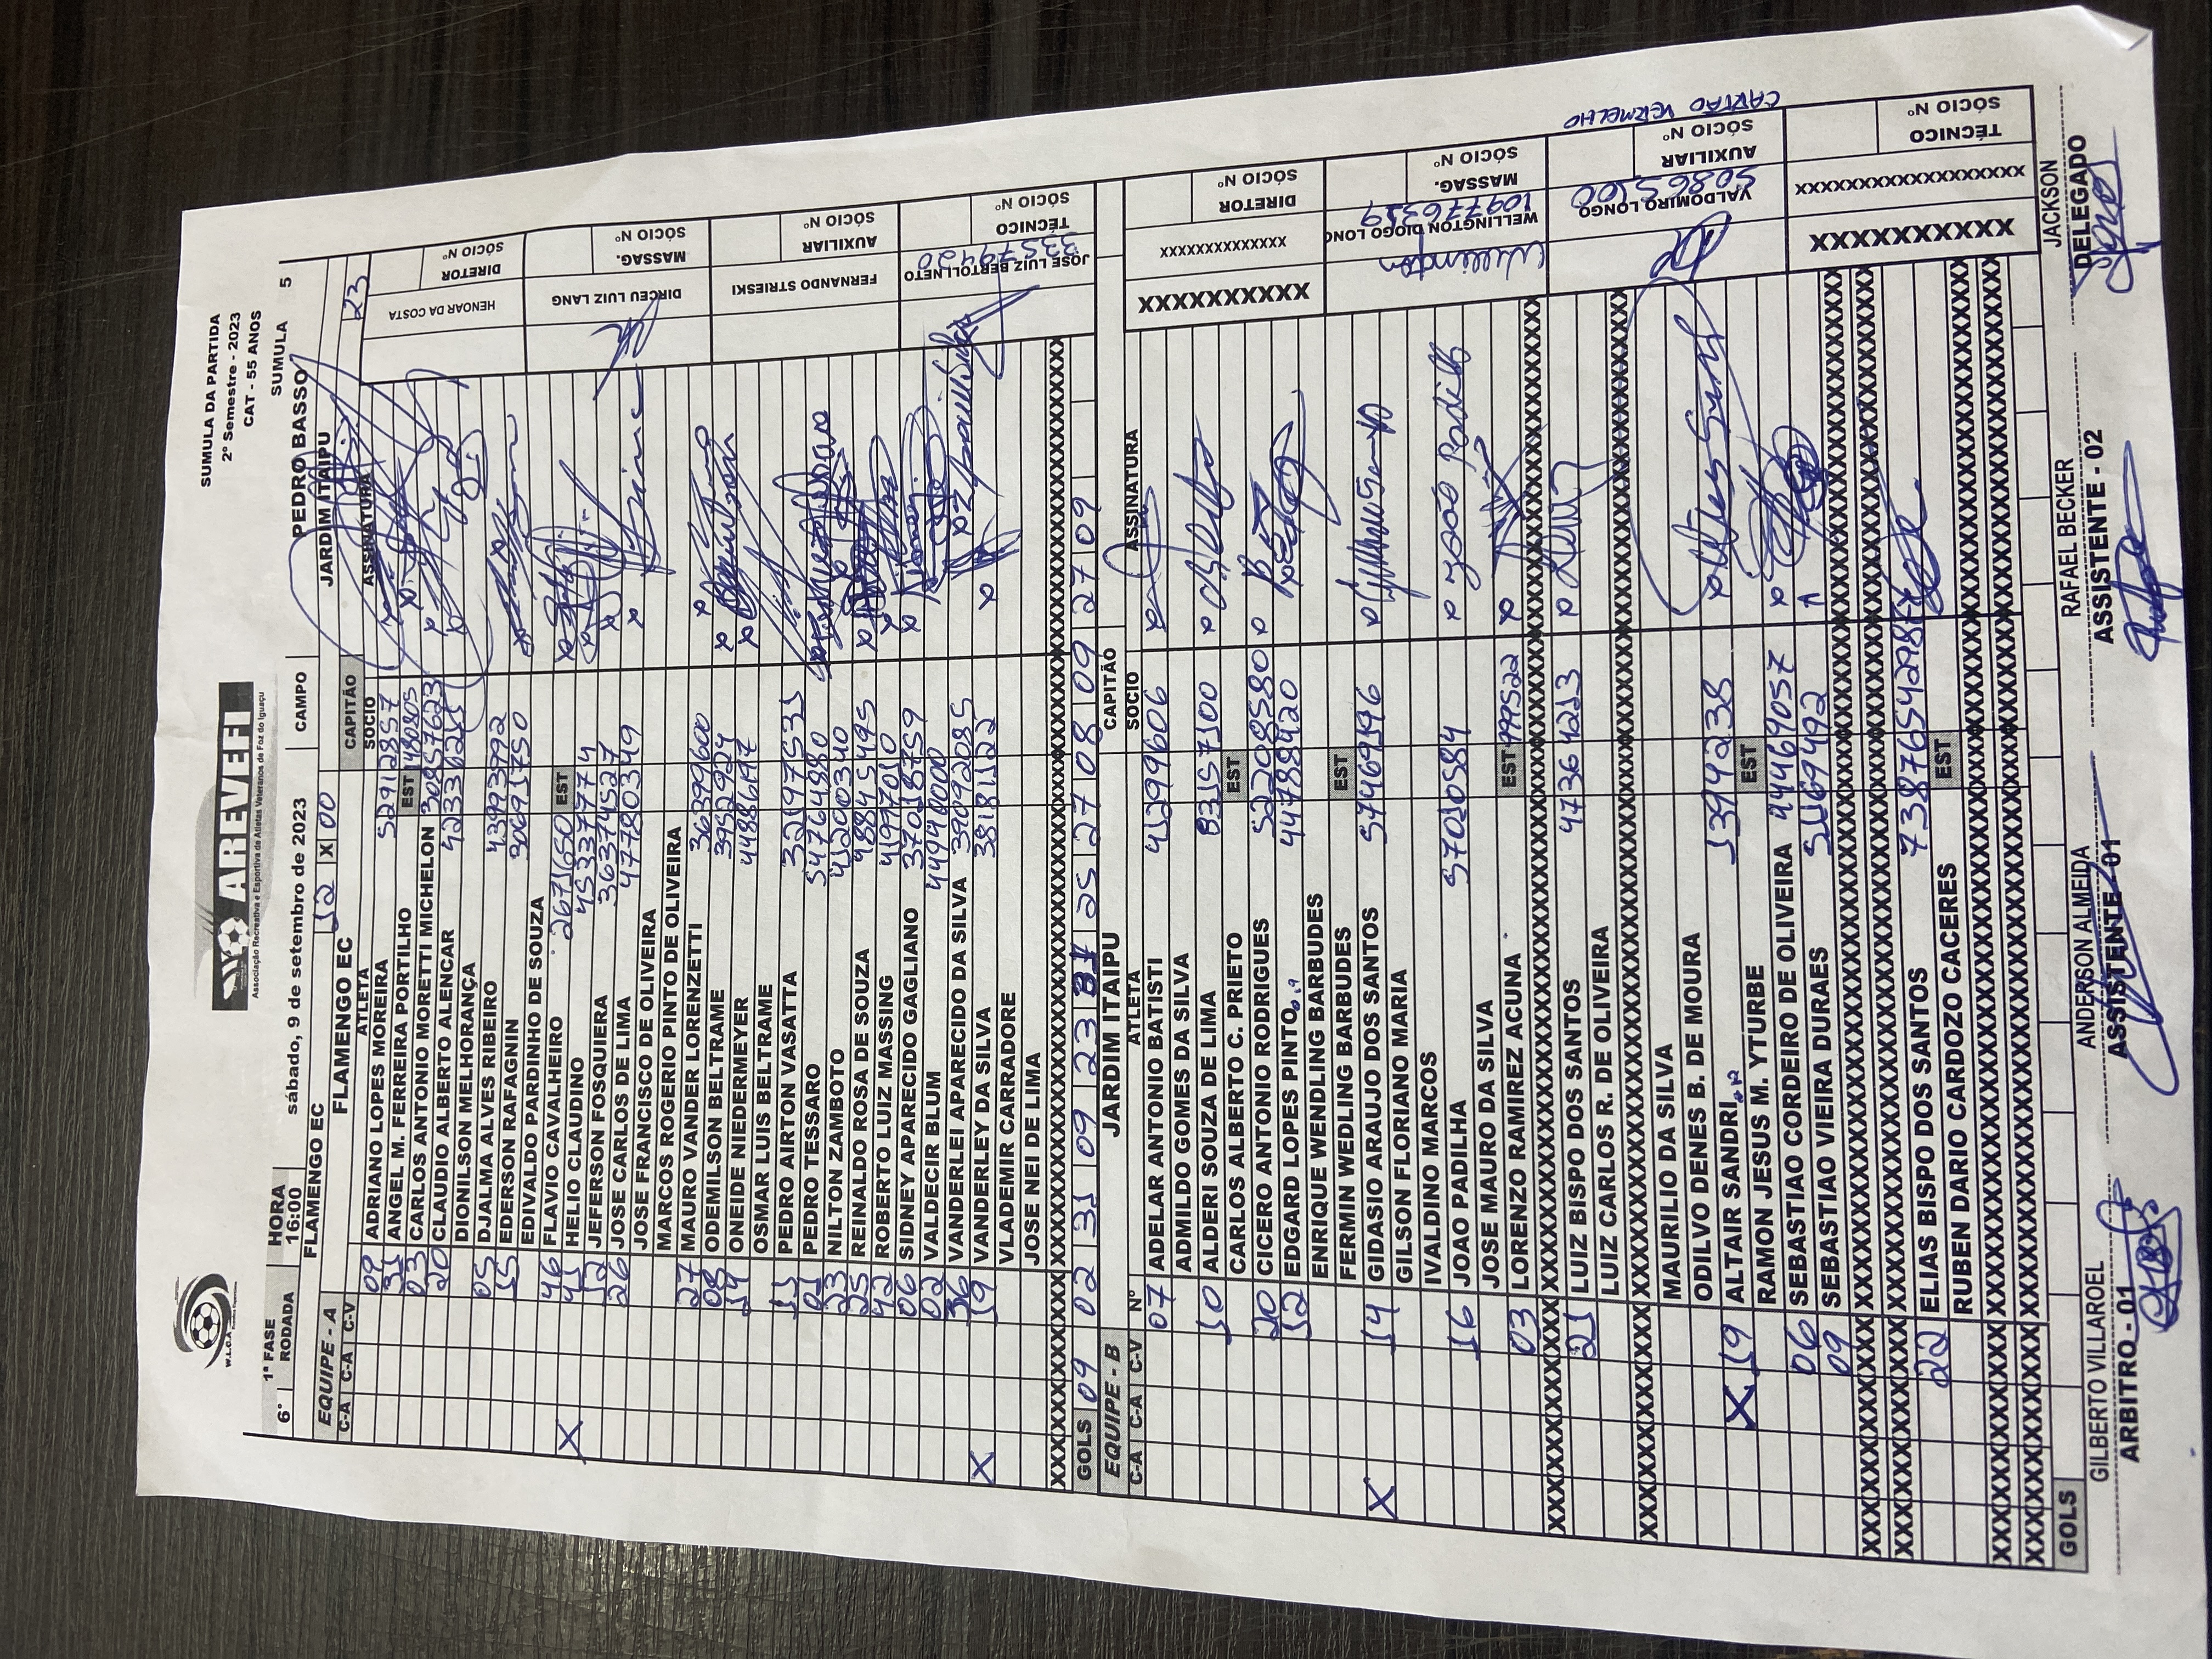 W.L.O.A
AREVEFI
Associação Recreativa e Esportiva de Atletas Veteranos de Foz do Iguaçu
SUMULA DA PARTIDA
2º Semestre - 2023
CAT - 55 ANOS
1ª FASE HORA SUMULA 5
6° RODADA 16:00 sábado, 9 de setembro de 2023 CAMPO PEDRO BASSO
FLAMENGO EC 12 X 00 JARDIM ITAIPU
EQUIPE - A FLAMENGO EC CAPITÃO 23
C-A C-A C-V ATLETA SOCIO ASSINATURA
09 ADRIANO LOPES MOREIRA 52912857
31 ANGEL M. FERREIRA PORTILHO EST
03 CARLOS ANTONIO MORETTI MICHELON 30857623
20 CLAUDIO ALBERTO ALENCAR
DIONILSON MELHORANÇA
05 DJALMA ALVES RIBEIRO 43923792
15 EDERSON RAFAGNIN
EDIVALDO PARDINHO DE SOUZA
46 FLAVIO CAVALHEIRO 2671650 EST
X 41 HELIO CLAUDINO
12 JEFERSON FOSQUIERA 36374527
26 JOSE CARLOS DE LIMA 477803349
JOSE FRANCISCO DE OLIVEIRA
MARCOS ROGERIO PINTO DE OLIVEIRA
27 MAURO VANDER LORENZETTI 36399600
08 ODEMILSON BELTRAME 39529
14 ONEIDE NIEDERMEYER
OSMAR LUIS BELTRAME
11 PEDRO AIRTON VASATTA 32197531
01 PEDRO TESSARO 54764880
33 NILTON ZAMBOTO 41200340
25 REINALDO ROSA DE SOUZA 48845495
42 ROBERTO LUIZ MASSING 41997010
06 SIDNEY APARECIDO GAGLIANO 37018759
02 VALDECIR BLUM 44940000
36 VANDERLEI APARECIDO DA SILVA 39092085
X 19 VANDERLEY DA SILVA 38181122
VLADEMIR CARRADORE
JOSE NEI DE LIMA
GOLS 09 02 31 09 23 15 27 08 09 27 09
HENOAR DA COSTA DIRETOR SÓCIO Nº
DIRCEU LUIZ LANG MASSAG. SÓCIO Nº
FERNANDO STRIESKI AUXILIAR SÓCIO Nº
JOSE LUIZ BERTOLLI NETO 33579420 TÉCNICO SÓCIO Nº
EQUIPE - B JARDIM ITAIPU CAPITÃO
C-A C-A C-V Nº ATLETA SOCIO ASSINATURA
07 ADELAR ANTONIO BATISTI 41299606
ADMILDO GOMES DA SILVA
10 ALDERI SOUZA DE LIMA 83157100
CARLOS ALBERTO C. PRIETO EST
20 CICERO ANTONIO RODRIGUES 522085580
12 EDGARD LOPES PINTO 44788420
ENRIQUE WENDLING BARBUDES
FERMIN WEDLING BARBUDES EST
X 14 GIDASIO ARAUJO DOS SANTOS 57469196
GILSON FLORIANO MARIA
IVALDINO MARCOS
16 JOAO PADILHA 57010584 João Padilh
JOSE MAURO DA SILVA
03 LORENZO RAMIREZ ACUNA EST
XXXXXXXXXXXXXXXXXXXX
21 LUIZ BISPO DOS SANTOS 47364213
LUIZ CARLOS R. DE OLIVEIRA
XXXXXXXXXXXXXXXXXXXX
MAURILIO DA SILVA
ODILVO DENES B. DE MOURA
X 19 ALTAIR SANDRI 13944238
RAMON JESUS M. YTURBE EST
06 SEBASTIAO CORDEIRO DE OLIVEIRA 44469057
09 SEBASTIAO VIEIRA DURAES
XXXXXXXXXXXXXXXXXXXX
XXXXXXXXXXXXXXXXXXXX
22 ELIAS BISPO DOS SANTOS
RUBEN DARIO CARDOZO CACERES EST
XXXXXXXXXXXXXXXXXXXX
XXXXXXXXXXXXXXXXXXXX
GOLS
XXXXXXXXXX XXXXXXXXXXXXXX DIRETOR SÓCIO Nº
WELLINGTON DIOGO LONG 109776359 MASSAG. SÓCIO Nº
VALDOMIRO LONGO 50865500 AUXILIAR SÓCIO Nº
CARTÃO VERMELHO
XXXXXXXXXXX XXXXXXXXXXXXXXXXXXX TÉCNICO SÓCIO Nº
GILBERTO VILLAROEL ANDERSON ALMEIDA RAFAEL BECKER JACKSON
ARBITRO - 01 ASSISTENTE - 01 ASSISTENTE - 02 DELEGADO